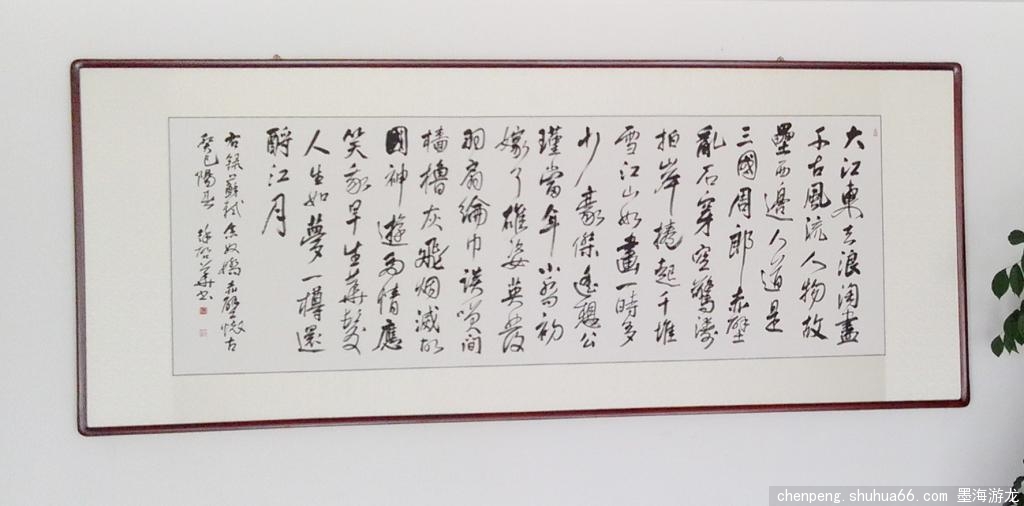 大江東去浪淘盡
千古風流人物故
壘西邊人道是
三國周郎赤壁
亂石穿空驚濤
拍岸捲起千堆
雪江山如畫一時多
少豪傑遙想公
瑾當年小喬初
嫁了雄姿英發
羽扇綸巾談笑間
檣櫓灰飛烟滅故
國神遊多情應
笑我早生華髮
人生如夢一樽還
酹江月
右錄蘇軾念奴嬌赤壁懷古
癸巳陽春 華書
chenpeng.shuhua66.com 墨海游龙